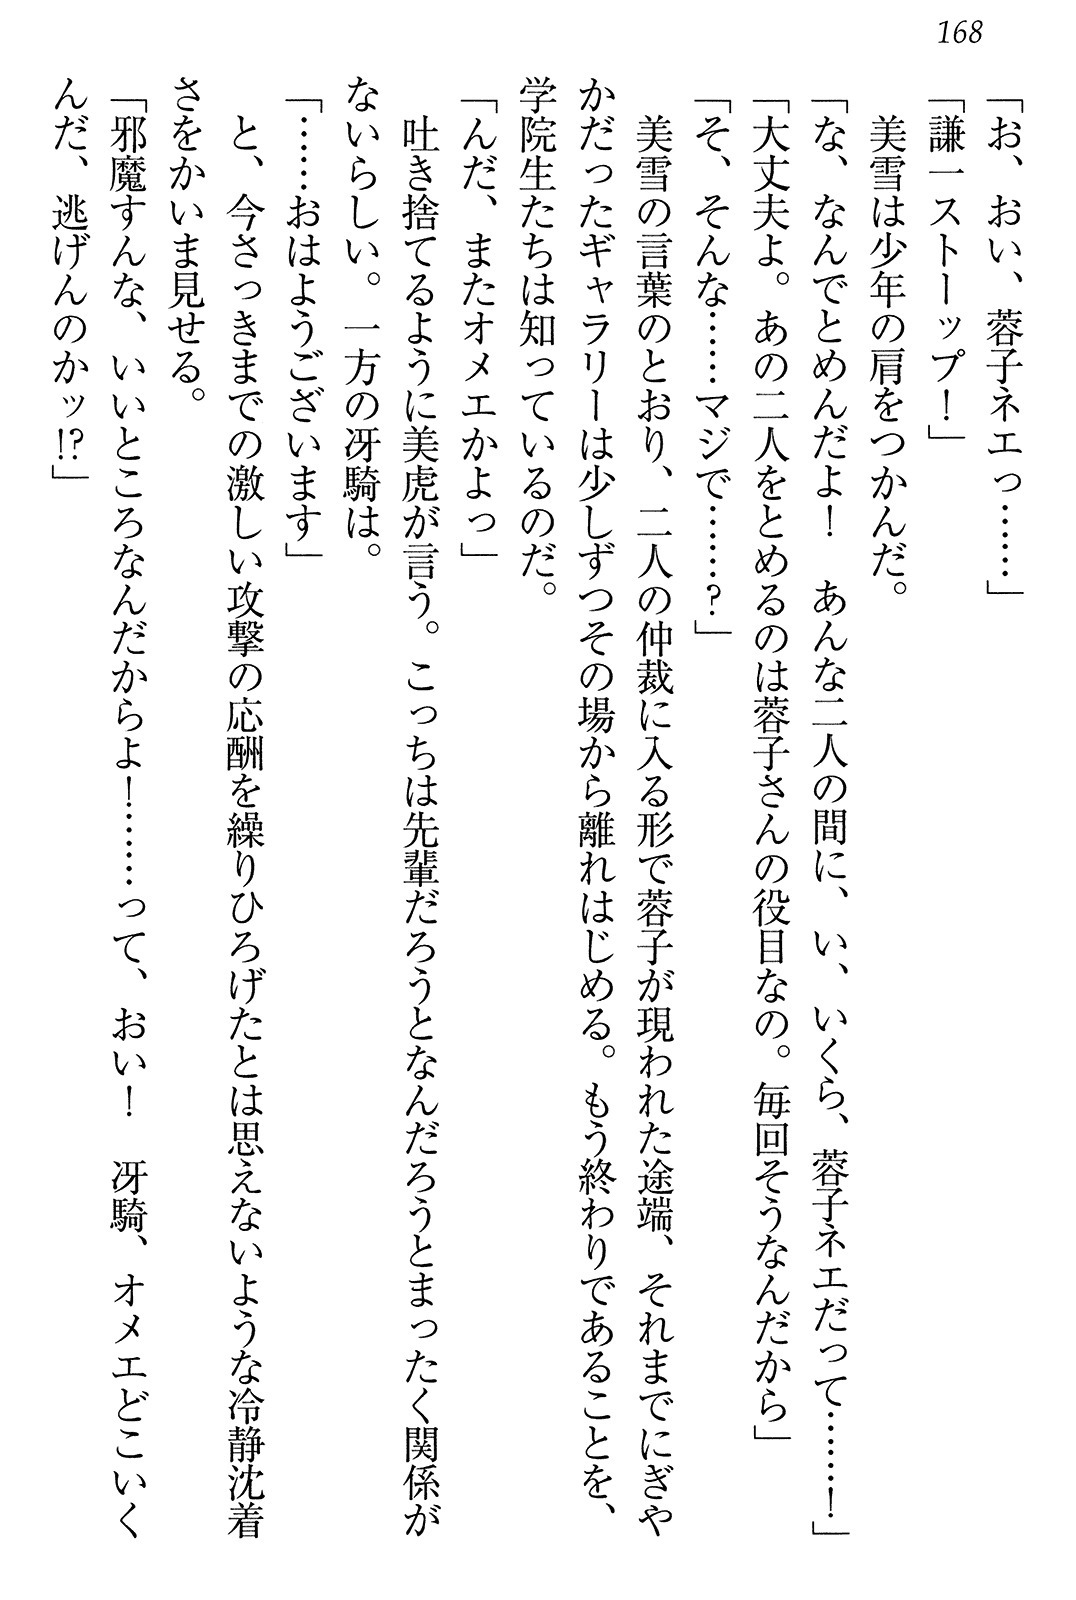 168
「お、おい、蓉子ネエっ……」
「謙一ストーップ！」
　美雪は少年の肩をつかんだ。
「な、なんでとめんだよ！　あんな二人の間に、い、いくら、蓉子ネエだって……！」
「大丈夫よ。あの二人をとめるのは蓉子さんの役目なの。毎回そうなんだから」
「そ、そんな……マジで……？」
　美雪の言葉のとおり、二人の仲裁に入る形で蓉子が現われた途端、それまでにぎや
かだったギャラリーは少しずつその場から離れはじめる。もう終わりであることを、
学院生たちは知っているのだ。
「んだ、またオメエかよっ」
　吐き捨てるように美虎が言う。こっちは先輩だろうとなんだろうとまったく関係が
ないらしい。一方の冴騎は。
「……おはようございます」
　と、今さっきまでの激しい攻撃の応酬を繰りひろげたとは思えないような冷静沈着
さをかいま見せる。
「邪魔すんな、いいところなんだからよ！……って、おい！　冴騎、オメエどこいく
んだ、逃げんのかッ!?」